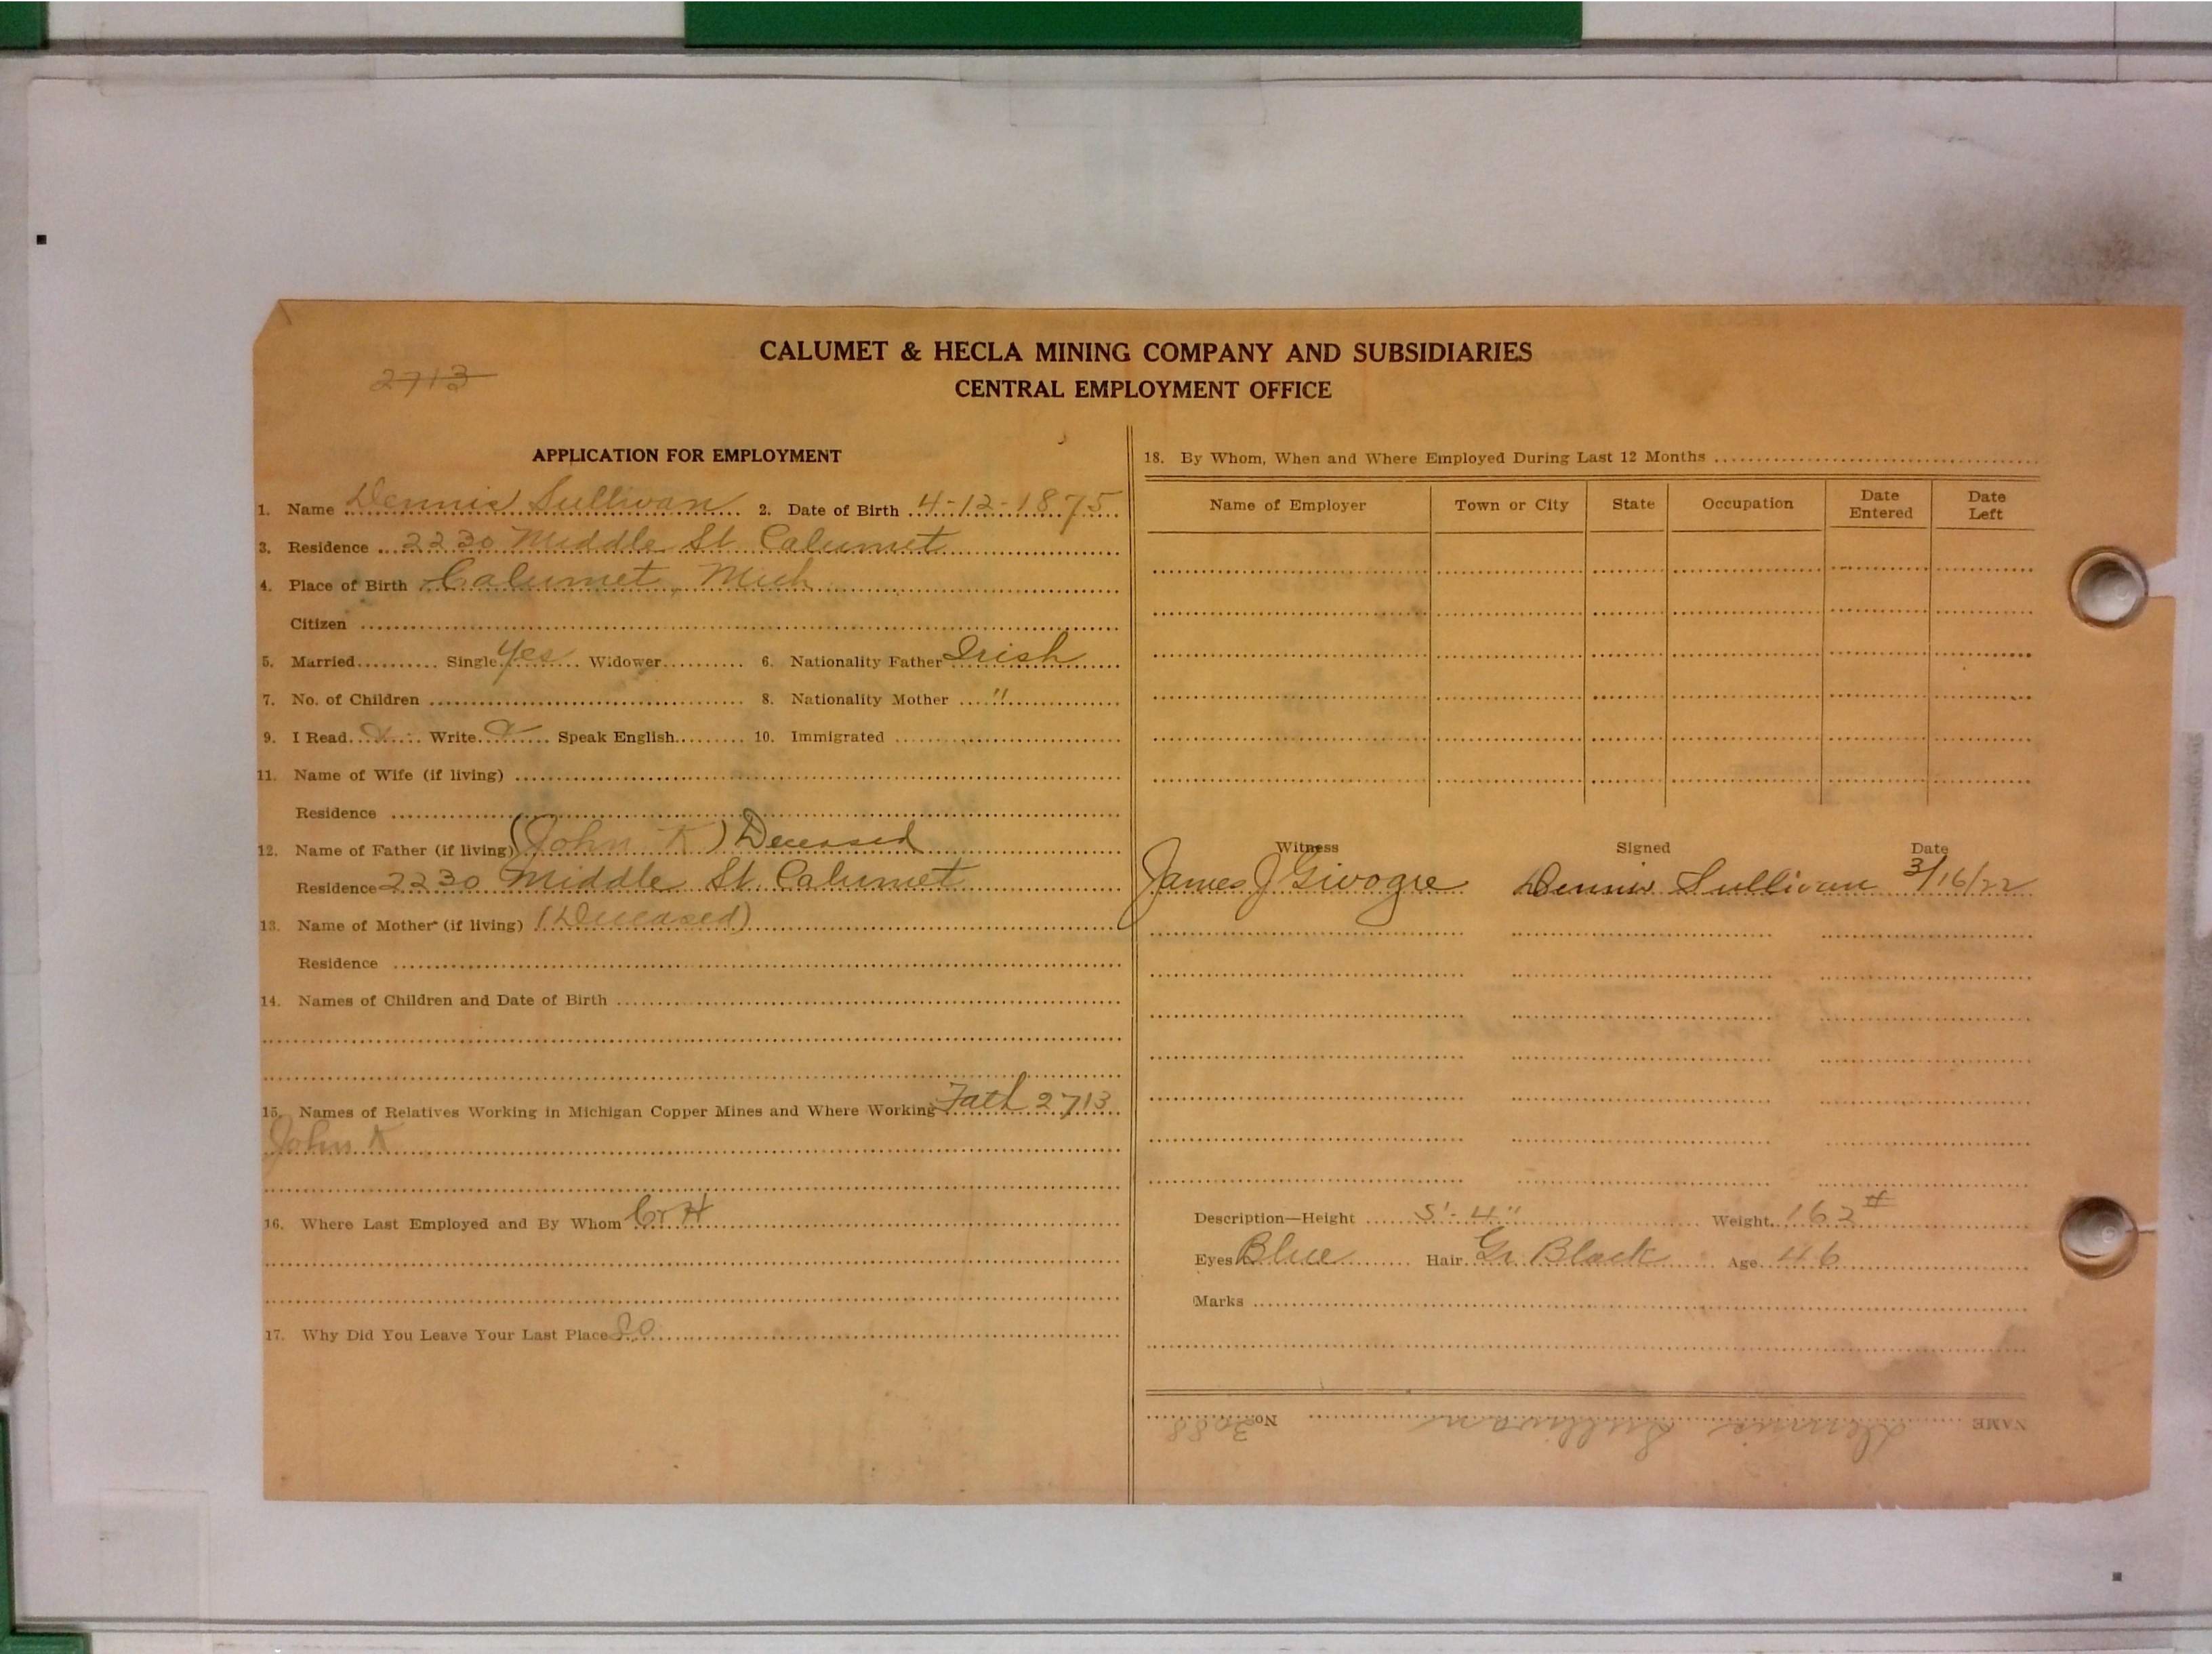 2713
CALUMET & HECLA MINING COMPANY AND SUBSIDIARIES
CENTRAL EMPLOYMENT OFFICE
APPLICATION FOR EMPLOYMENT
1. Name Dennis Sullivan 2. Date of Birth 4-12-1875
3. Residence 2230 Middle St. Calumet
4. Place of Birth Calumet, Mich
Citizen
5. Married Single Yes Widower 6. Nationality Father Irish
7. No. of Children 8. Nationality Mother "
9. I Read Write Speak English 10. Immigrated
11. Name of Wife (if living)
Residence
12. Name of Father (if living) (John K) Deceased
Residence 2230 Middle St. Calumet
13. Name of Mother (if living) (Deceased)
Residence
14. Names of Children and Date of Birth
15. Names of Relatives Working in Michigan Copper Mines and Where Working Fath 2713
John K
16. Where Last Employed and By Whom C & H
17. Why Did You Leave Your Last Place
18. By Whom, When and Where Employed During Last 12 Months
Name of Employer Town or City State Occupation Date Entered Date Left
Witness Signed Date
James J Givogre Dennis Sullivan 3/16/22
Description—Height 5'-4" Weight 162#
Eyes Blue Hair Gr. Black Age 46
Marks
NAME Dennis Sullivan No. 3088